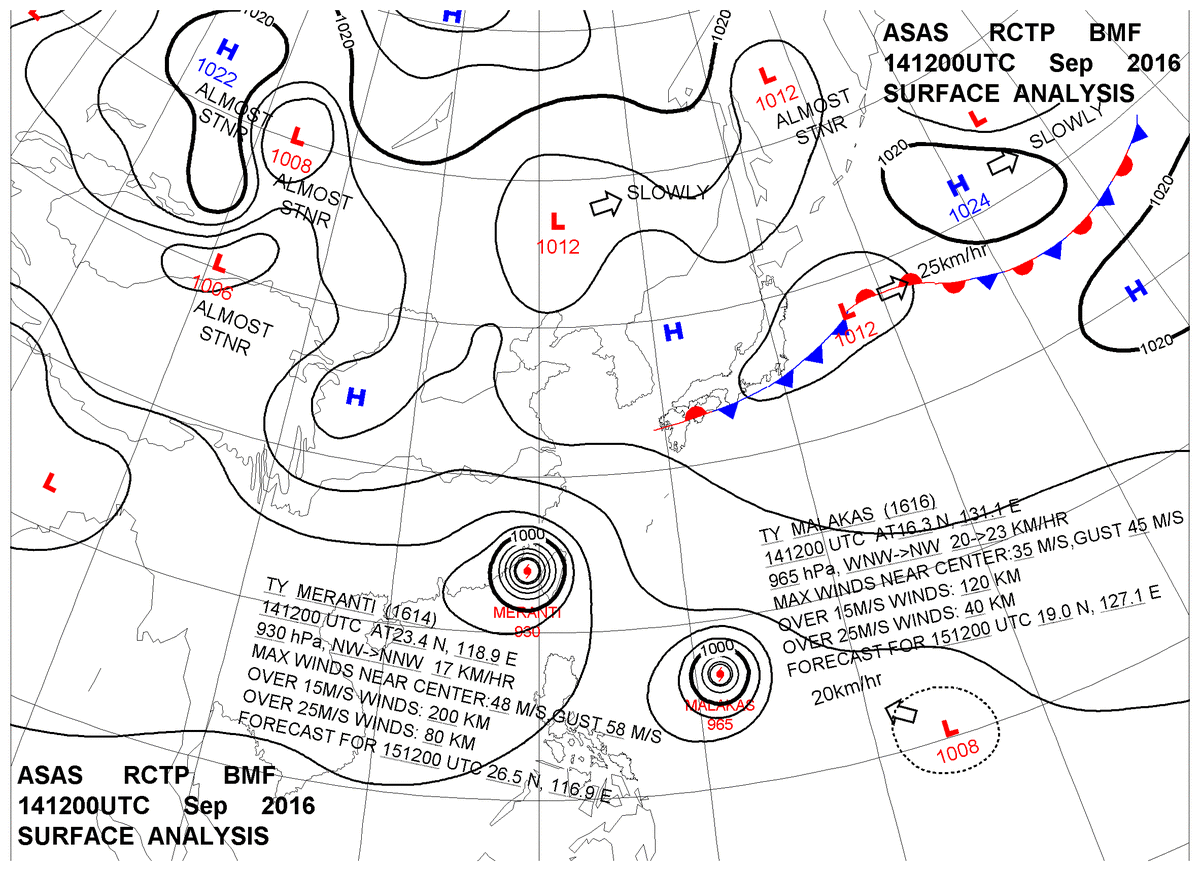 ASAS RCTP BMF
141200UTC Sep 2016
SURFACE ANALYSIS
1020
1020
1020
H
H
1022
ALMOST
STNR
L
1008
ALMOST
STNR
L
1012
ALMOST
STNR
L
SLOWLY
1020
H
1024
1020
L
1012
SLOWLY
L
1006
ALMOST
STNR
25km/hr
L
1012
H
H
1020
H
L
1000
MERANTI
930
TY MERANTI (1614)
141200 UTC AT23.4 N, 118.9 E
930 hPa, NW->NNW 17 KM/HR
MAX WINDS NEAR CENTER:48 M/S,GUST 58 M/S
OVER 15M/S WINDS: 200 KM
OVER 25M/S WINDS: 80 KM
FORECAST FOR 151200 UTC 26.5 N, 116.9 E
TY MALAKAS (1616)
141200 UTC AT16.3 N, 131.1 E
965 hPa, WNW->NW 20->23 KM/HR
MAX WINDS NEAR CENTER:35 M/S,GUST 45 M/S
OVER 15M/S WINDS: 120 KM
OVER 25M/S WINDS: 40 KM
FORECAST FOR 151200 UTC 19.0 N, 127.1 E
1000
MALAKAS
965
20km/hr
L
1008
ASAS RCTP BMF
141200UTC Sep 2016
SURFACE ANALYSIS